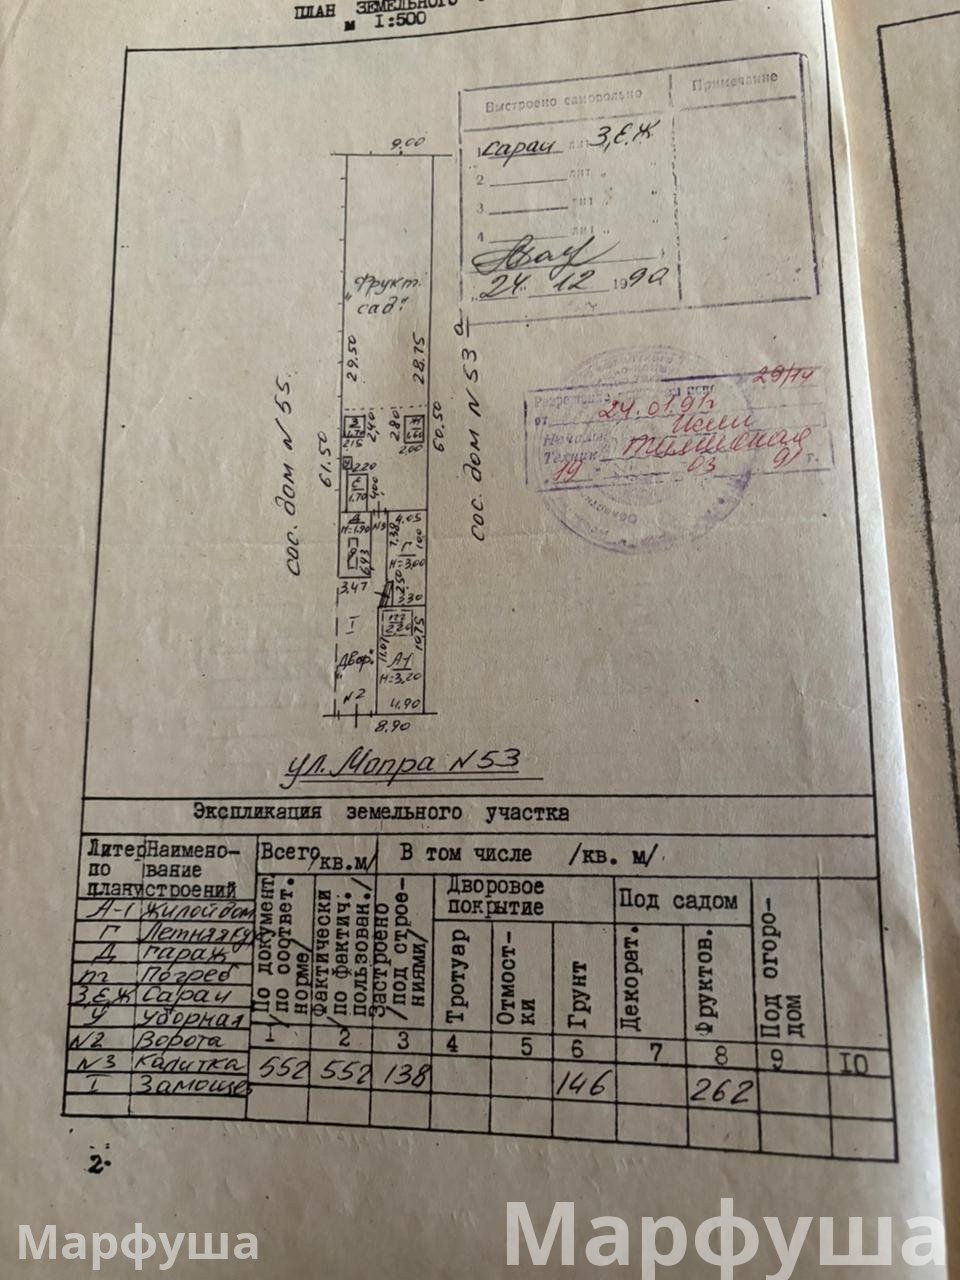 ПЛАН ЗЕМЕЛЬНОГО
м I:500
Выстроено самовольно
Примечание
1 сараи лит З,Е,Ж
2 лит "
3 лит "
4 лит "
"24" 12 1990
9.00
"Фрукт.
сад"
29.50
28.75
сос. дом N 55.
сос. дом N 53 а
61.50
60.50
2,40
2.80
2,15
2,00
2.20
1.70
4,00
Д
Н=1.90
N3
4.05
7.38
Г
1,00
Н=3,00
6,93
3,47
2,50
3,30
I
2.20
11.01
10,75
"Двор."
А-1
Н=3,20
N2
4.90
8.90
29/14
от 24.01.91г
Техник
19 03 91 г.
ул. Мопра N 53
Экспликация земельного участка
Литер по плану
Наименование строений
Всего /кв.м/
В том числе /кв. м/
По документ. /по соответ. норме/
Фактически /по фактич. пользован./
Застроено /под строениями/
Дворовое покрытие
Тротуар
Отмостки
Грунт
Под садом
Декорат.
Фруктов.
Под огородом
А-1 Жилой дом
Г Летняя кух
Д Гараж
п Погреб
З,Е,Ж Сараи
У Уборная
N2 Ворота
N3 Калитка
I Замощен
1 2 3 4 5 6 7 8 9 10
552 552 138 146 262
2.
Марфуша
Марфуша